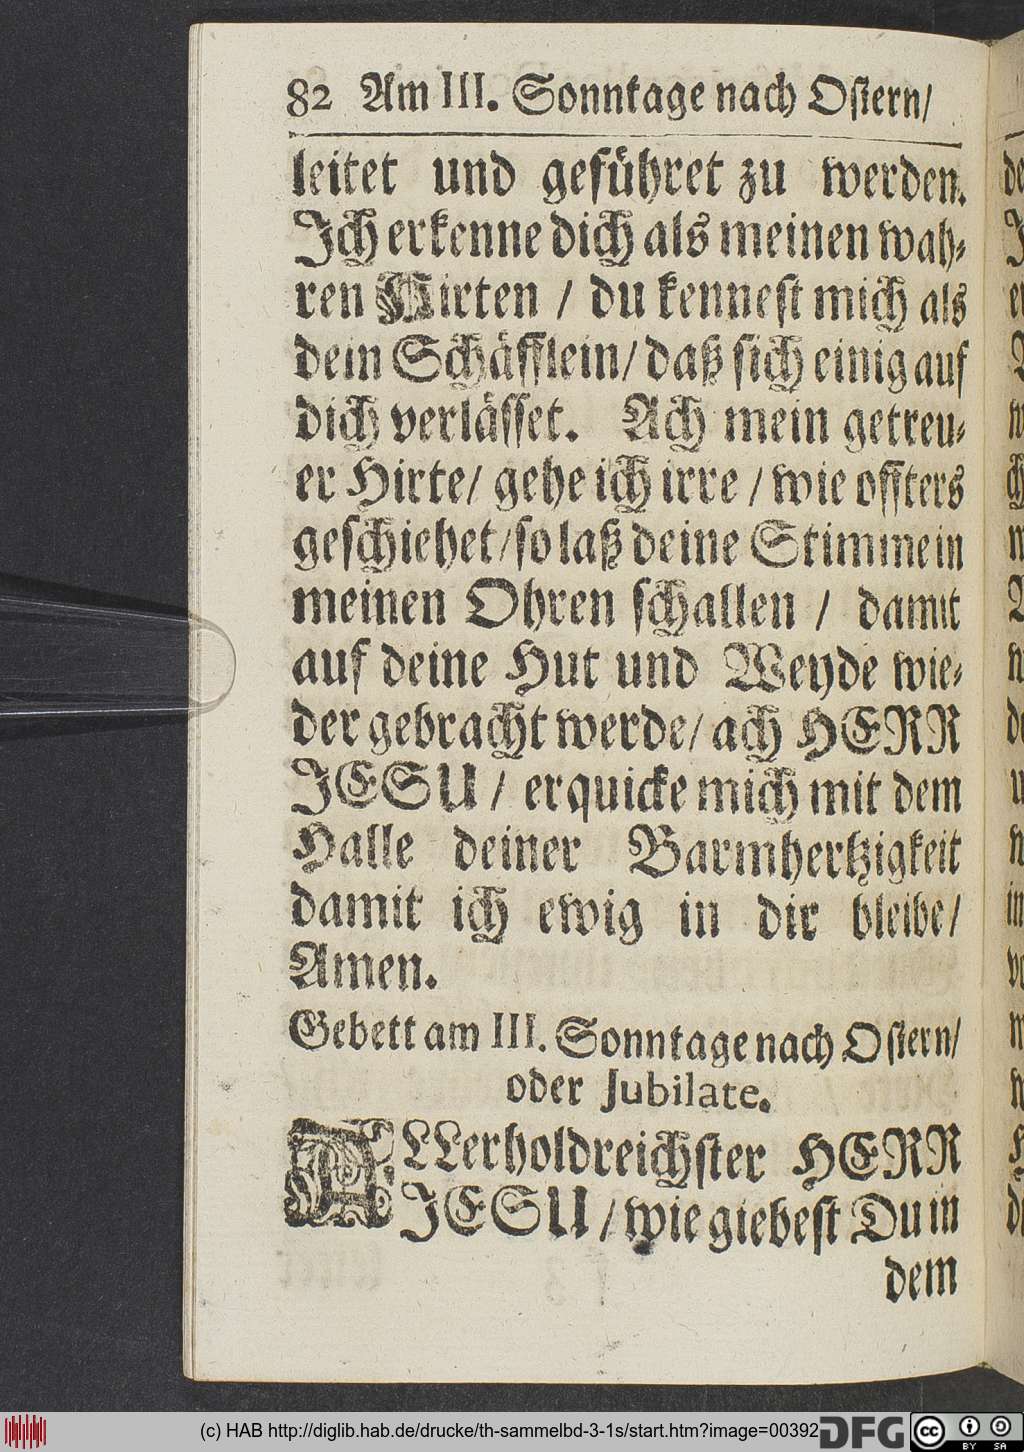 82 Am III. Sonntage nach Ostern/
leitet und geführet zu werden.
Ich erkenne dich als meinen wah-
ren Hirten / du kennest mich als
dein Schäfflein/ daß sich einig auf
dich verlässet. Ach mein getreu-
er Hirte/ gehe ich irre / wie offters
geschiehet/ so laß deine Stimme in
meinen Ohren schallen / damit
auf deine Hut und Weyde wie-
der gebracht werde/ ach HERR
JESU / erquicke mich mit dem
Halle deiner Barmhertzigkeit
damit ich ewig in dir bleibe/
Amen.
Gebett am III. Sonntage nach Ostern/
oder Jubilate.
ALLerholdreichster HERR
JESU / wie giebest Du in
dem
(c) HAB http://diglib.hab.de/drucke/th-sammelbd-3-1s/start.htm?image=00392
DFG
cc
BY SA